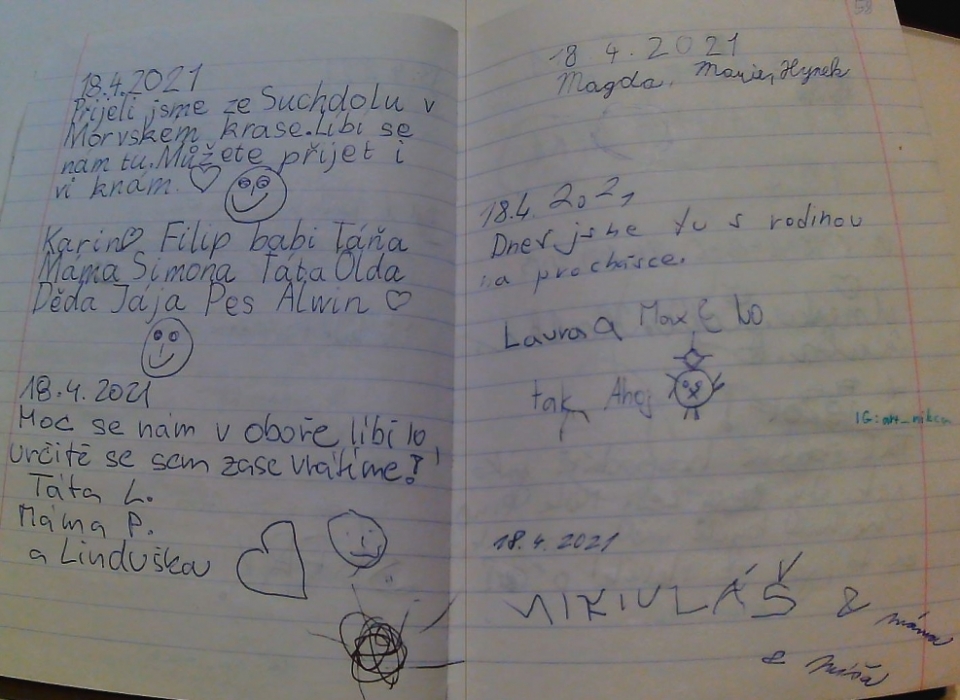 18.4.2021
Přijeli jsme ze Suchdolu v
Morvskem krase. Libi se
nam tu. Můžete přijet i
vi knám.
Karin Filip babi Táňa
Máma Simona Táta Olda
Děda Jája Pes Alwin
18.4.2021
Moc se nám v oboře líbilo,
určitě se sem zase vrátíme!
Táta L.
Máma P.
a Linduška
58
18 4. 2021
Magda, Hynek
18.4. 2021
Dnes jsme tu s rodinou
na prochásce.
Laura a Max
tak Ahoj
18.4.2021
MIKULÁŠ & máma
& Míša